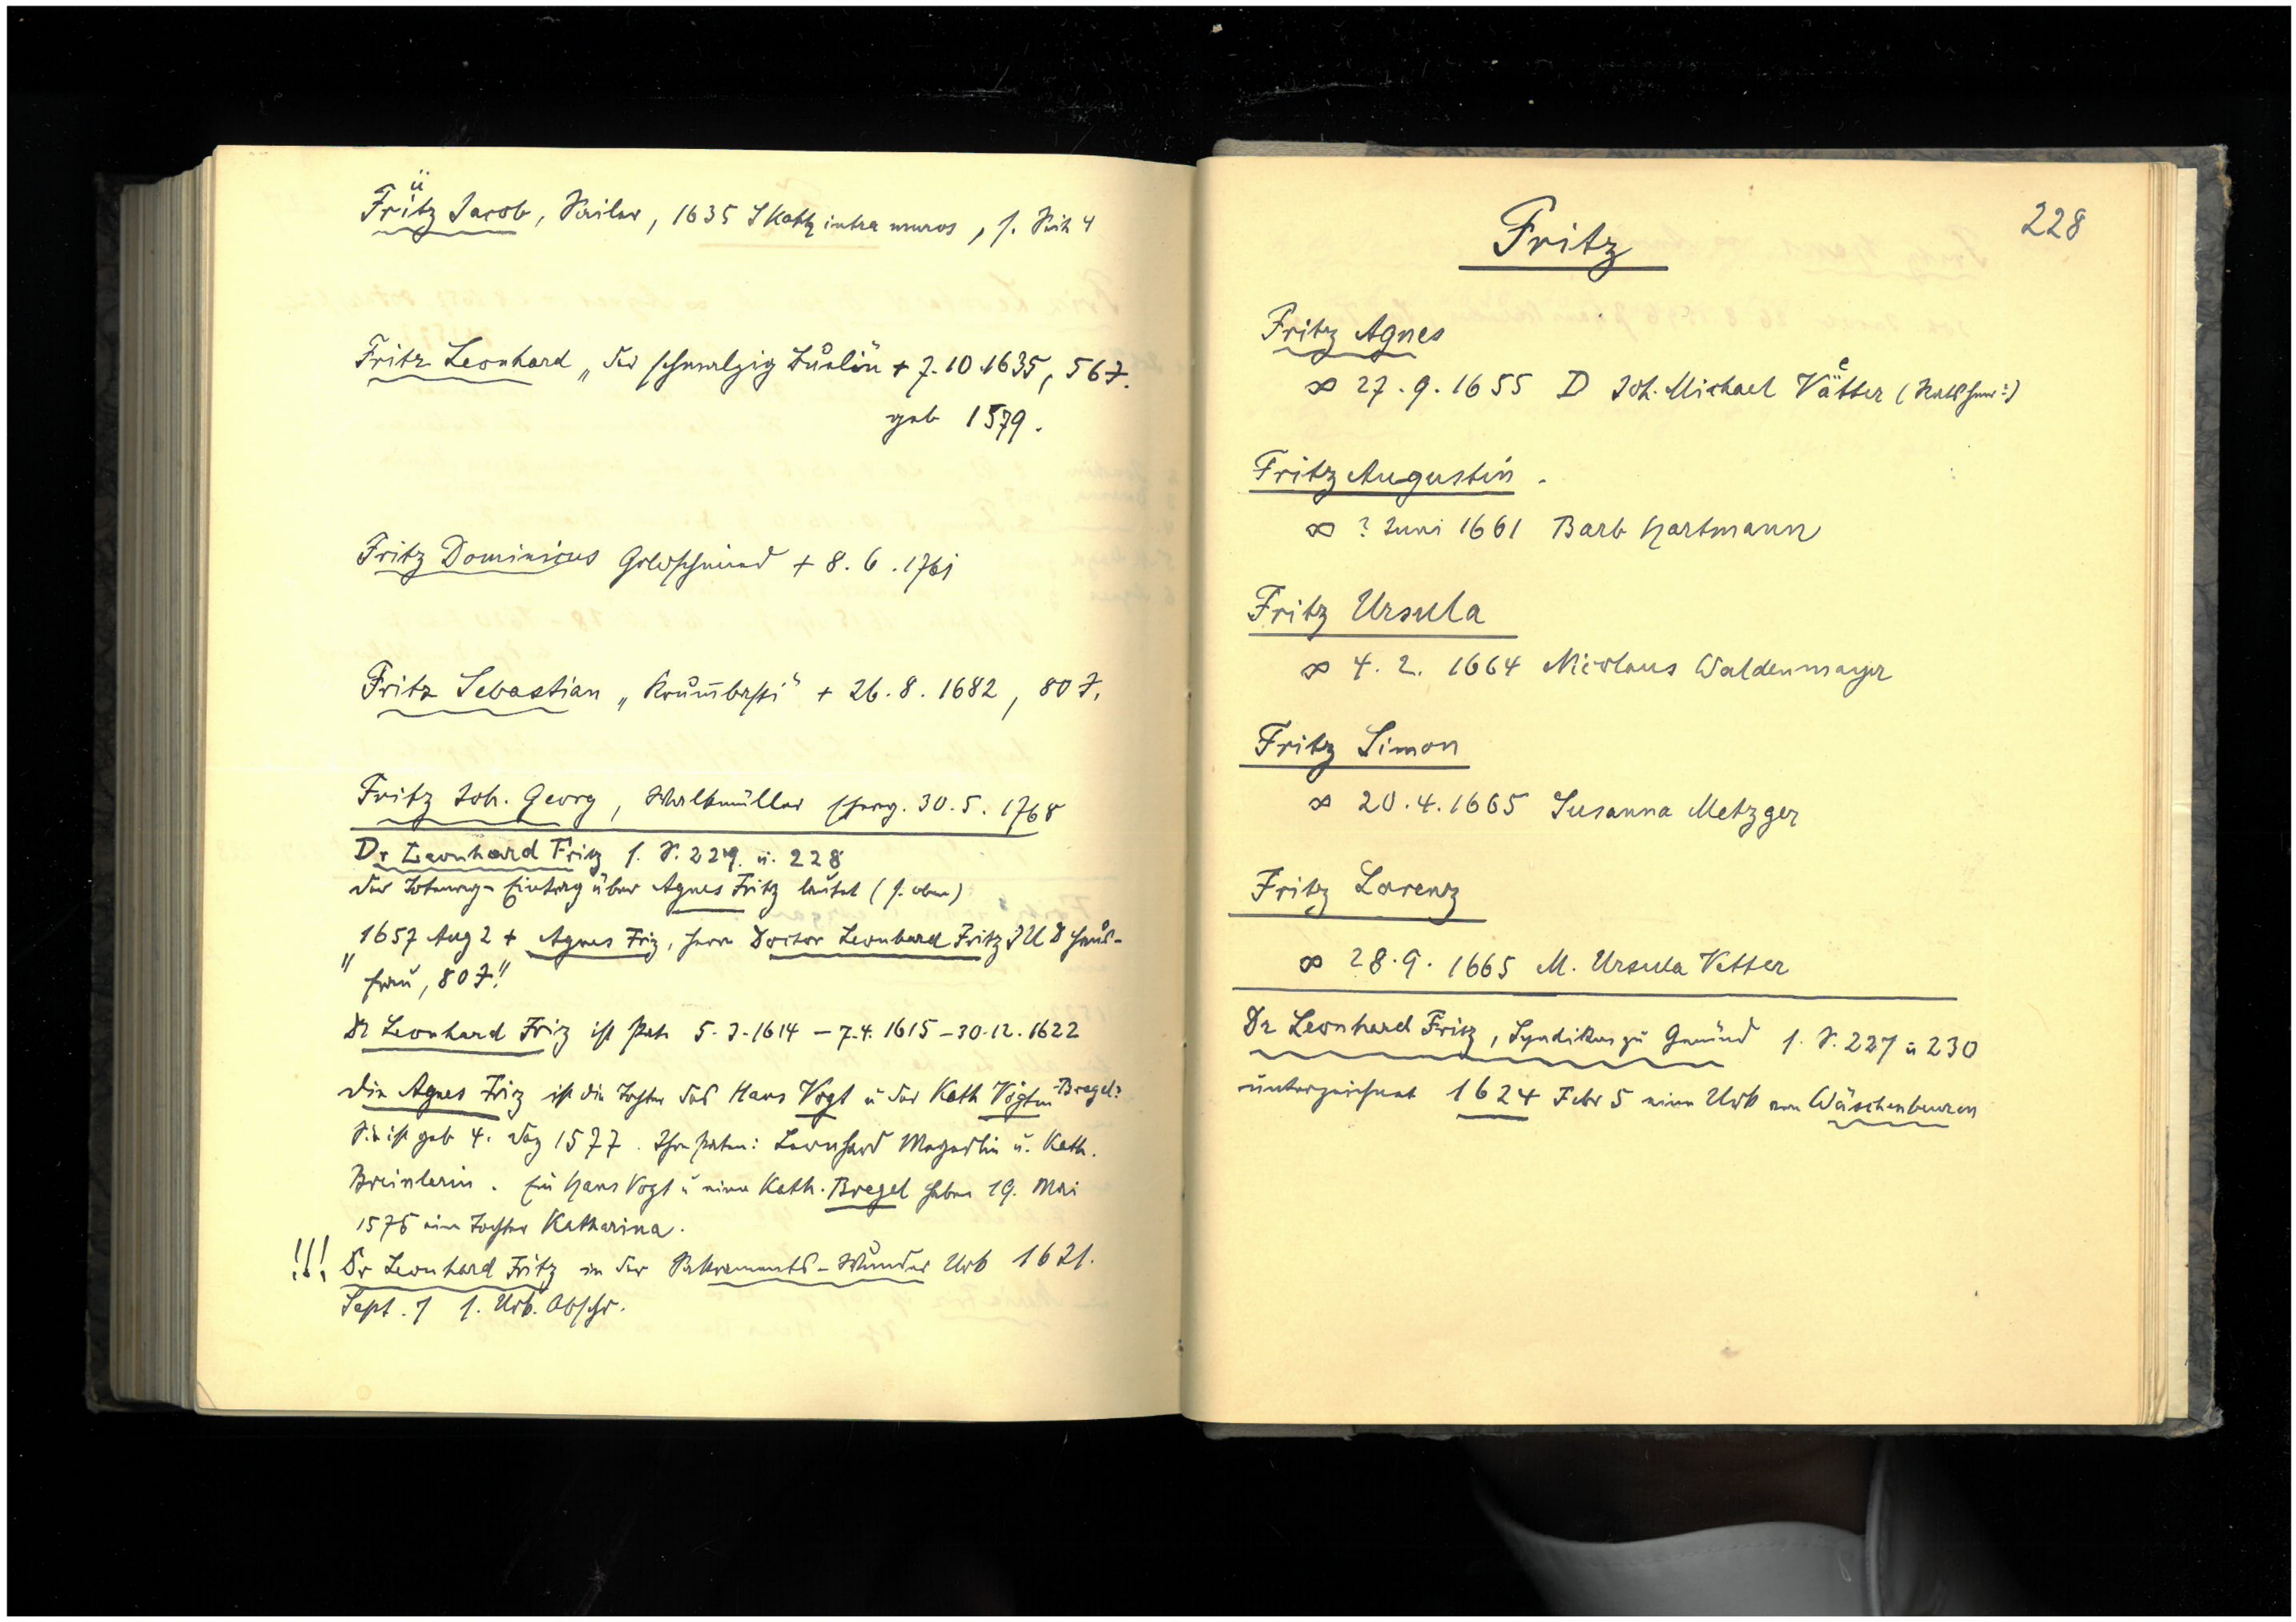 Frütz Jacob, Seiler, 1635 S Kath intra muros, s. Seite 4
Fritz Leonhard „der schmalzig + 7.10.1635, 56 J.
geb 1579.
Fritz Dominicus Goldschmied + 8.6.1761
Fritz Sebastian „Krumbasti“ + 26.8.1682, 80 J.
Fritz Joh. Georg, Walkmüller 30.5.1768
Dr Leonhard Fritz s. S. 229 u. 228
Der Totenreg-Eintrag über Agnes Fritz lautet (s. oben)
„1657 Aug 2 + Agnes Friz, Herrn Doctor Leonhard Fritz JUD Haus-
frau, 80 J.“
Dr Leonhard Friz ist Pate 5.3.1614 – 7.4.1615 – 30.12.1622
Die Agnes Friz ist die Tochter des Hans Vogt u der Kath Vögtin-Bregel?
Sie ist geb 4. Dez 1577. Ihre Paten: Leonhard Mayerlin u. Kath.
Breinlerin. Ein Hans Vogt u eine Kath. Bregel haben 19. Mai
1576 eine Tochter Katharina.
!!! Dr Leonhard Fritz in der Sakraments-Wunder Urk 1621.
Sept. 1 s. Urk. Abschr.
228
Fritz
Fritz Agnes
∞ 27.9.1655 D Joh. Michael Vätter (Ratsherr?)
Fritz Augustin.
∞ ? Juni 1661 Barb Hartmann
Fritz Ursula
∞ 4.2.1664 Nicolaus Waldenmayer
Fritz Simon
∞ 20.4.1665 Susanna Metzger
Fritz Lorenz
∞ 28.9.1665 M. Ursula Vetter
Dr Leonhard Fritz, Syndikus zu Gmünd s. S. 227 u 230
unterzeichnet 1624 Febr 5 eine Urk von Wäschenbeuren